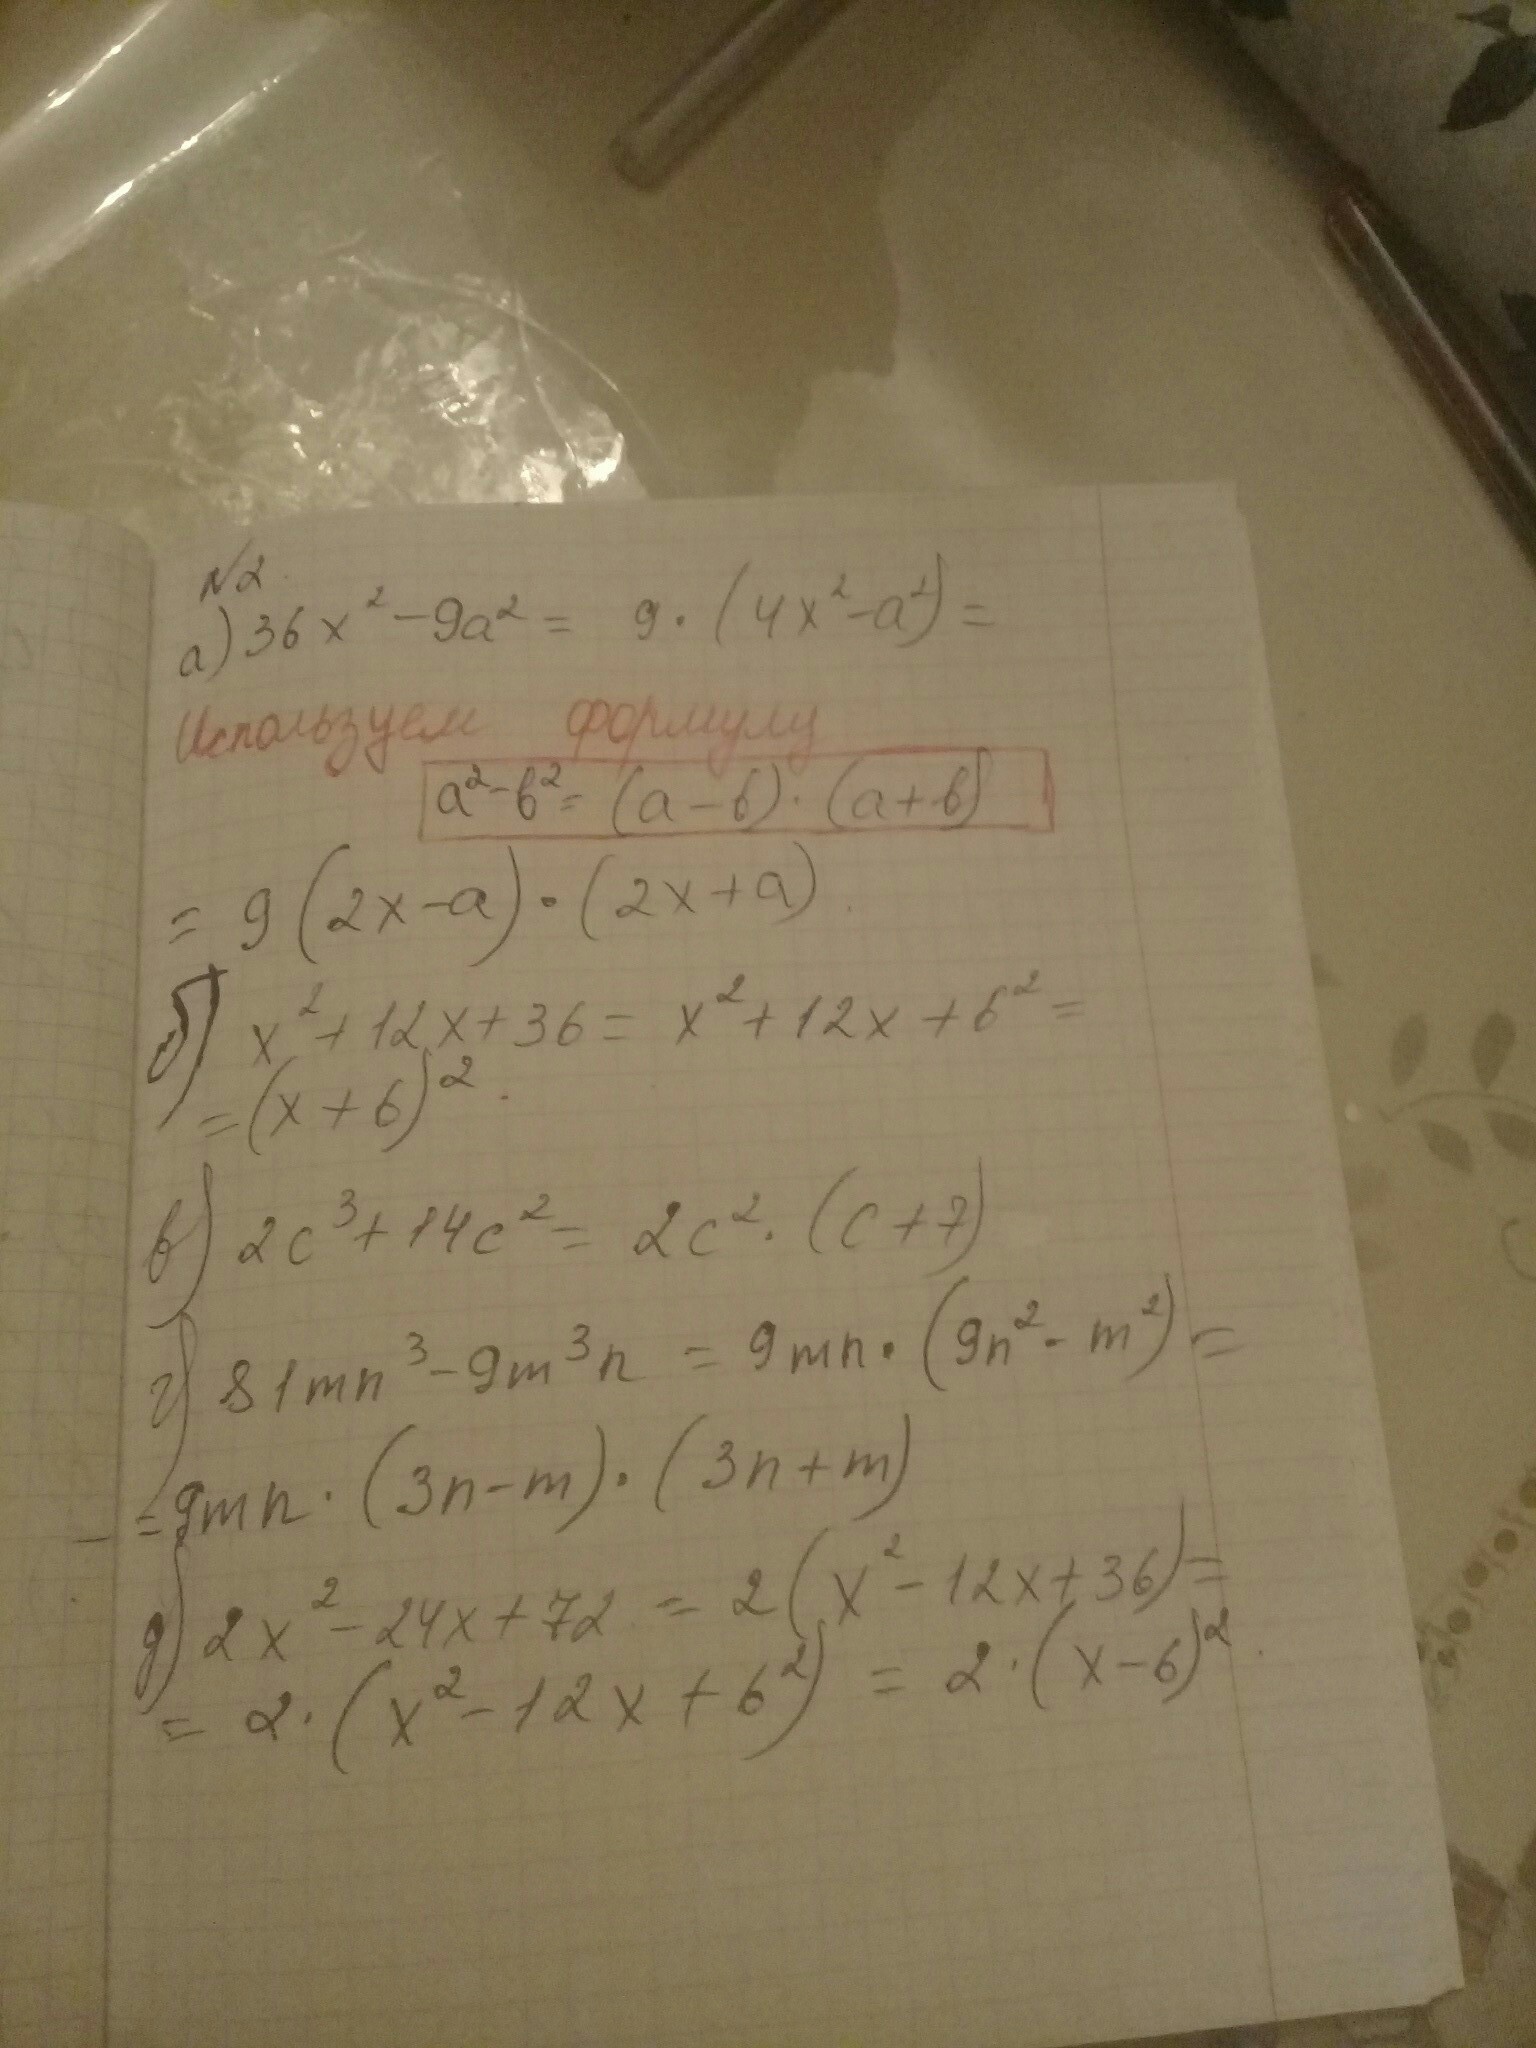 №2.
а) 36x² - 9a² = 9 · (4x² - a²) =
Используем формулу
a² - b² = (a - b) · (a + b)
= 9 (2x - a) · (2x + a).
б) x² + 12x + 36 = x² + 12x + 6² =
= (x + 6)².
в) 2c³ + 14c² = 2c² · (c + 7)
г) 81mn³ - 9m³n = 9mn · (9n² - m²) =
= 9mn · (3n - m) · (3n + m)
д) 2x² - 24x + 72 = 2(x² - 12x + 36) =
= 2 · (x² - 12x + 6²) = 2 · (x - 6)².